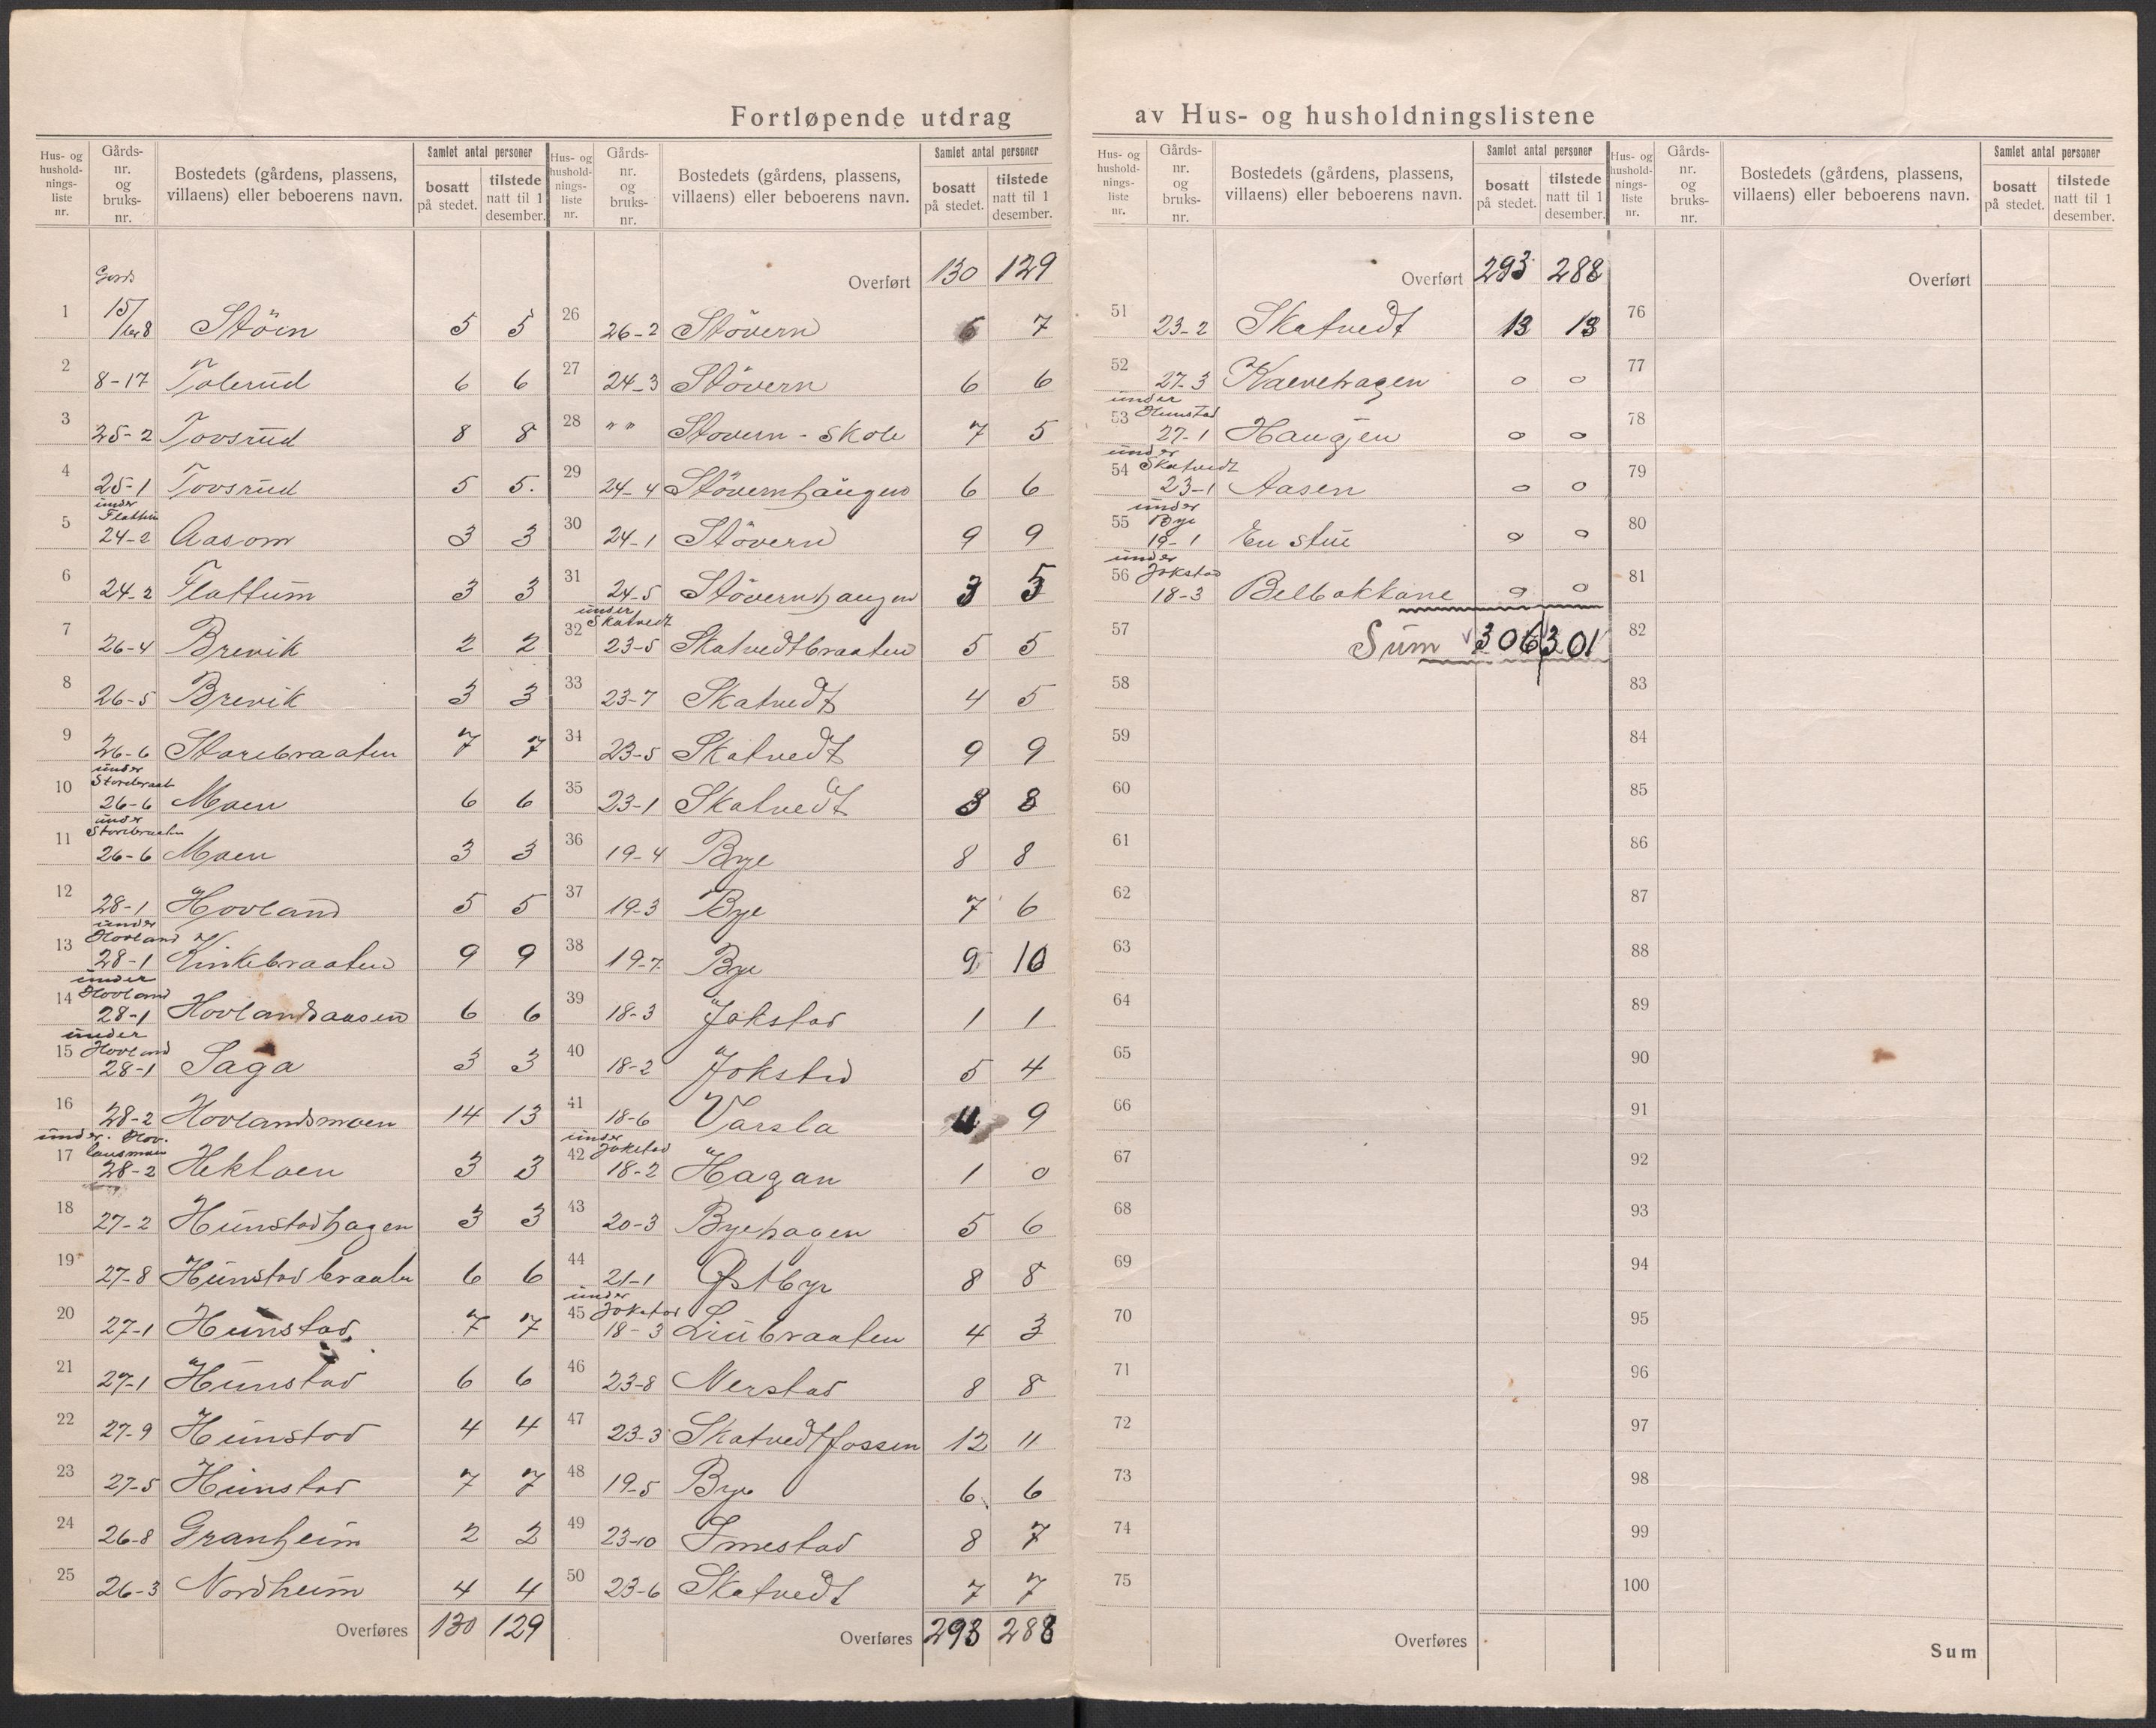 Fortløpende utdrag av Hus- og husholdningslistene
Hus- og husholdnings- liste nr. | Gårds- nr. og bruks- nr. | Bostedets (gårdens, plassens, villaens) eller beboerens navn. | Samlet antal personer | bosatt på stedet. | tilstede natt til 1 desember.
1 15/ 8 Stöin 5 5
2 8-17 Tolerud 6 6
3 25-2 Tovsrud 8 8
4 25-1 Tovsrud 5 5.
5 under Flattum 24-2 Aasom 3 3
6 24-2 Flattum 3 3
7 26-4 Brevik 2 2
8 26-5 Brevik 3 3
9 26-6 Storebraaten 7 7
10 under Storebraat 26-6 Moen 6 6
11 under Storebraaten 26-6 Moen 3 3
12 28-1 Hovland 5 5
13 under Hovland 28-1 Kinkebraaten 9 9
14 under Hovland 28-1 Hovlandsaasen 6 6
15 under Hovland 28-1 Saga 3 3
16 28-2 Hovlandsmoen 14 13
17 under Hov- lansmoen 28-2 Hektoen 3 3
18 27-2 Hunstadhagen 3 3
19 27-8 Hunstadbraaten 6 6
20 27-1 Hunstad 7 7
21 27-1 Hunstad 6 6
22 27-9 Hunstad 4 4
23 27-5 Hunstad 7 7
24 26-8 Granheim 2 2
25 26-3 Nordheim 4 4
Overføres 130 129
Hus- og husholdnings- liste nr. | Gårds- nr. og bruks- nr. | Bostedets (gårdens, plassens, villaens) eller beboerens navn. | Samlet antal personer | bosatt på stedet. | tilstede natt til 1 desember.
Overført 130 129
26 26-2 Stövern 6 7
27 24-3 Stövern 6 6
28 " " Stovern - Skole 7 5
29 24-4 Stövernhaugen 6 6
30 24-1 Stövern 9 9
31 24-5 Stövernhaugen 3 5
32 under Skatvedt 23-5 Skatvedtbraaten 5 5
33 23-7 Skatvedt 4 5
34 23-5 Skatvedt 9 9
35 23-1 Skatvedt 8 8
36 19-4 Bye 8 8
37 19-3 Bye 7 6
38 19-7 Bye 9 10
39 18-3 Jokstad 1 1
40 18-2 Jokstad 5 4
41 18-6 Varsla 11 9
42 under Jokstad 18-2 Hagan 1 0
43 20-3 Byehagen 5 6
44 21-1 Østbye 8 8
45 under Jokstad 18-3 Liubraaten 4 3
46 23-8 Nerstad 8 8
47 23-3 Skatvedtfossen 12 11
48 19-5 Bye 6 6
49 23-10 Imestad 8 7
50 23-6 Skatvedt 7 7
Overføres 293 288
Hus- og husholdnings- liste nr. | Gårds- nr. og bruks- nr. | Bostedets (gårdens, plassens, villaens) eller beboerens navn. | Samlet antal personer | bosatt på stedet. | tilstede natt til 1 desember.
Overført 293 288
51 23-2 Skatvedt 13 13
52 27-3 Kalvehagen 0 0
53 under Hunstad 27-1 Haugen 0 0
54 under Skatvedt 23-1 Aasen 0 0
55 under Bye 19-1 En stue 0 0
56 under Jokstad 18-3 Belbakkane 0 0
57 Sum 306 301
58
59
60
61
62
63
64
65
66
67
68
69
70
71
72
73
74
75
Overføres
Hus- og husholdnings- liste nr. | Gårds- nr. og bruks- nr. | Bostedets (gårdens, plassens, villaens) eller beboerens navn. | Samlet antal personer | bosatt på stedet. | tilstede natt til 1 desember.
Overført
76
77
78
79
80
81
82
83
84
85
86
87
88
89
90
91
92
93
94
95
96
97
98
99
100
Sum